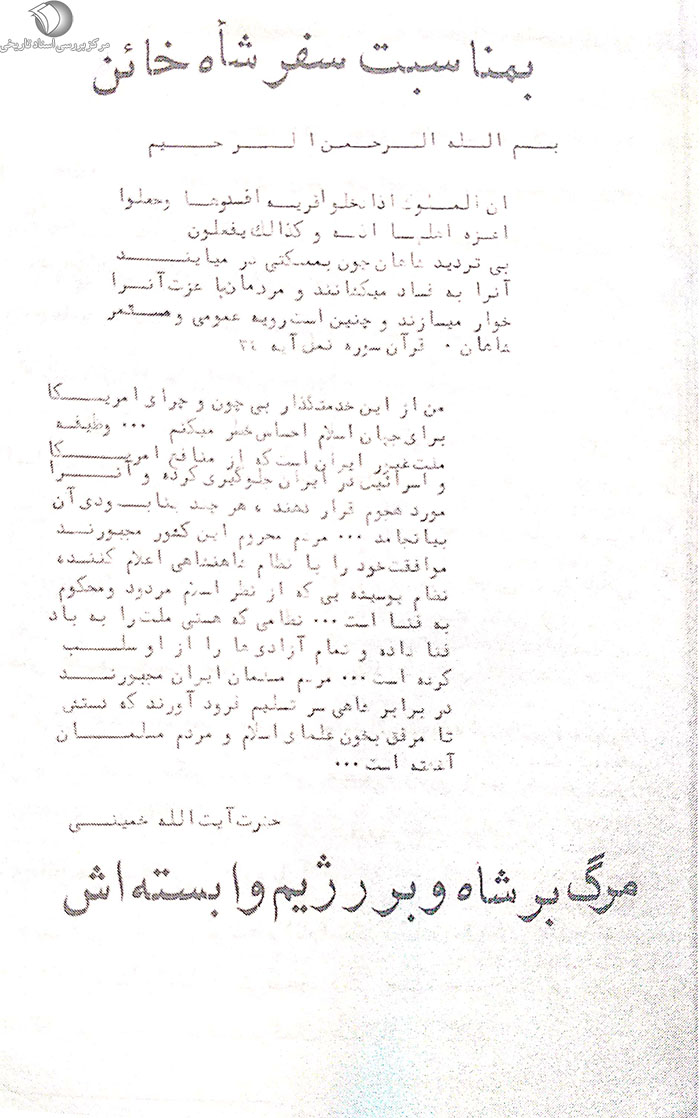 مرکز بررسی اسناد تاریخی
بمناسبت سفر شاه خائن
بسم الله الرحمن الرحیم
ان الملوک اذا دخلوا قریه افسدوها وجعلوا
اعزه اهلها اذله و کذالک یفعلون
بی تردید شاهان چون بمملکتی در میایند
آنرا به فساد میکشانند و مردمان با عزت آنرا
خوار میسازند و چنین است رویه عمومی و مستمر
شاهان ٠ قرآن سوره نمل آیه ٣٤
من از این خدمتگذار بی چون و چرای امریکا
برای جهان اسلام احساس خطر میکنم ... وظیفه
ملت غیور ایران است که از منافع امریکا
و اسرائیل در ایران جلوگیری کرده و آنرا
مورد هجوم قرار دهند ، هر چند بنابودی آن
بیانجامد ... مردم محروم این کشور مجبورند
موافقت خود را با نظام شاهنشاهی اعلام کننده
نظام پوسیده یی که از نظر اسلام مردود ومحکوم
به فنا است ... نظامی که هستی ملت را به باد
فنا داده و تمام آزادی ها را از او سلب
کرده است ... مردم مسلمان ایران مجبورند
در برابر شاهی سر تسلیم فرود آورند که دستش
تا مرفق بخون علمای اسلام و مردم مسلمان
آغشته است ...
حضرت آیت الله خمینی
مرگ بر شاه و بر رژیم وابسته اش